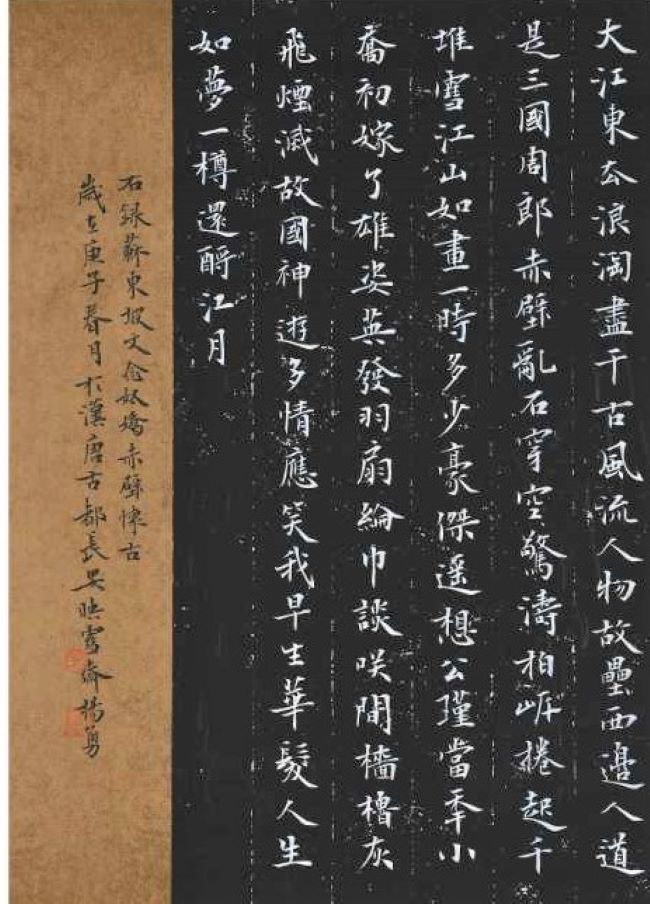 大江東去浪淘盡千古風流人物故壘西邊人道
是三國周郎赤壁亂石穿空驚濤拍岸捲起千
堆雪江山如畫一時多少豪傑遥想公瑾當年小
喬初嫁了雄姿英發羽扇綸巾談咲間檣櫓灰
飛煙滅故國神遊多情應笑我早生華髮人生
如夢一樽還酹江月
右録蘇東坡文念奴嬌赤壁懷古
歲在庚子春月於漢唐古都長安映雪齋楊勇